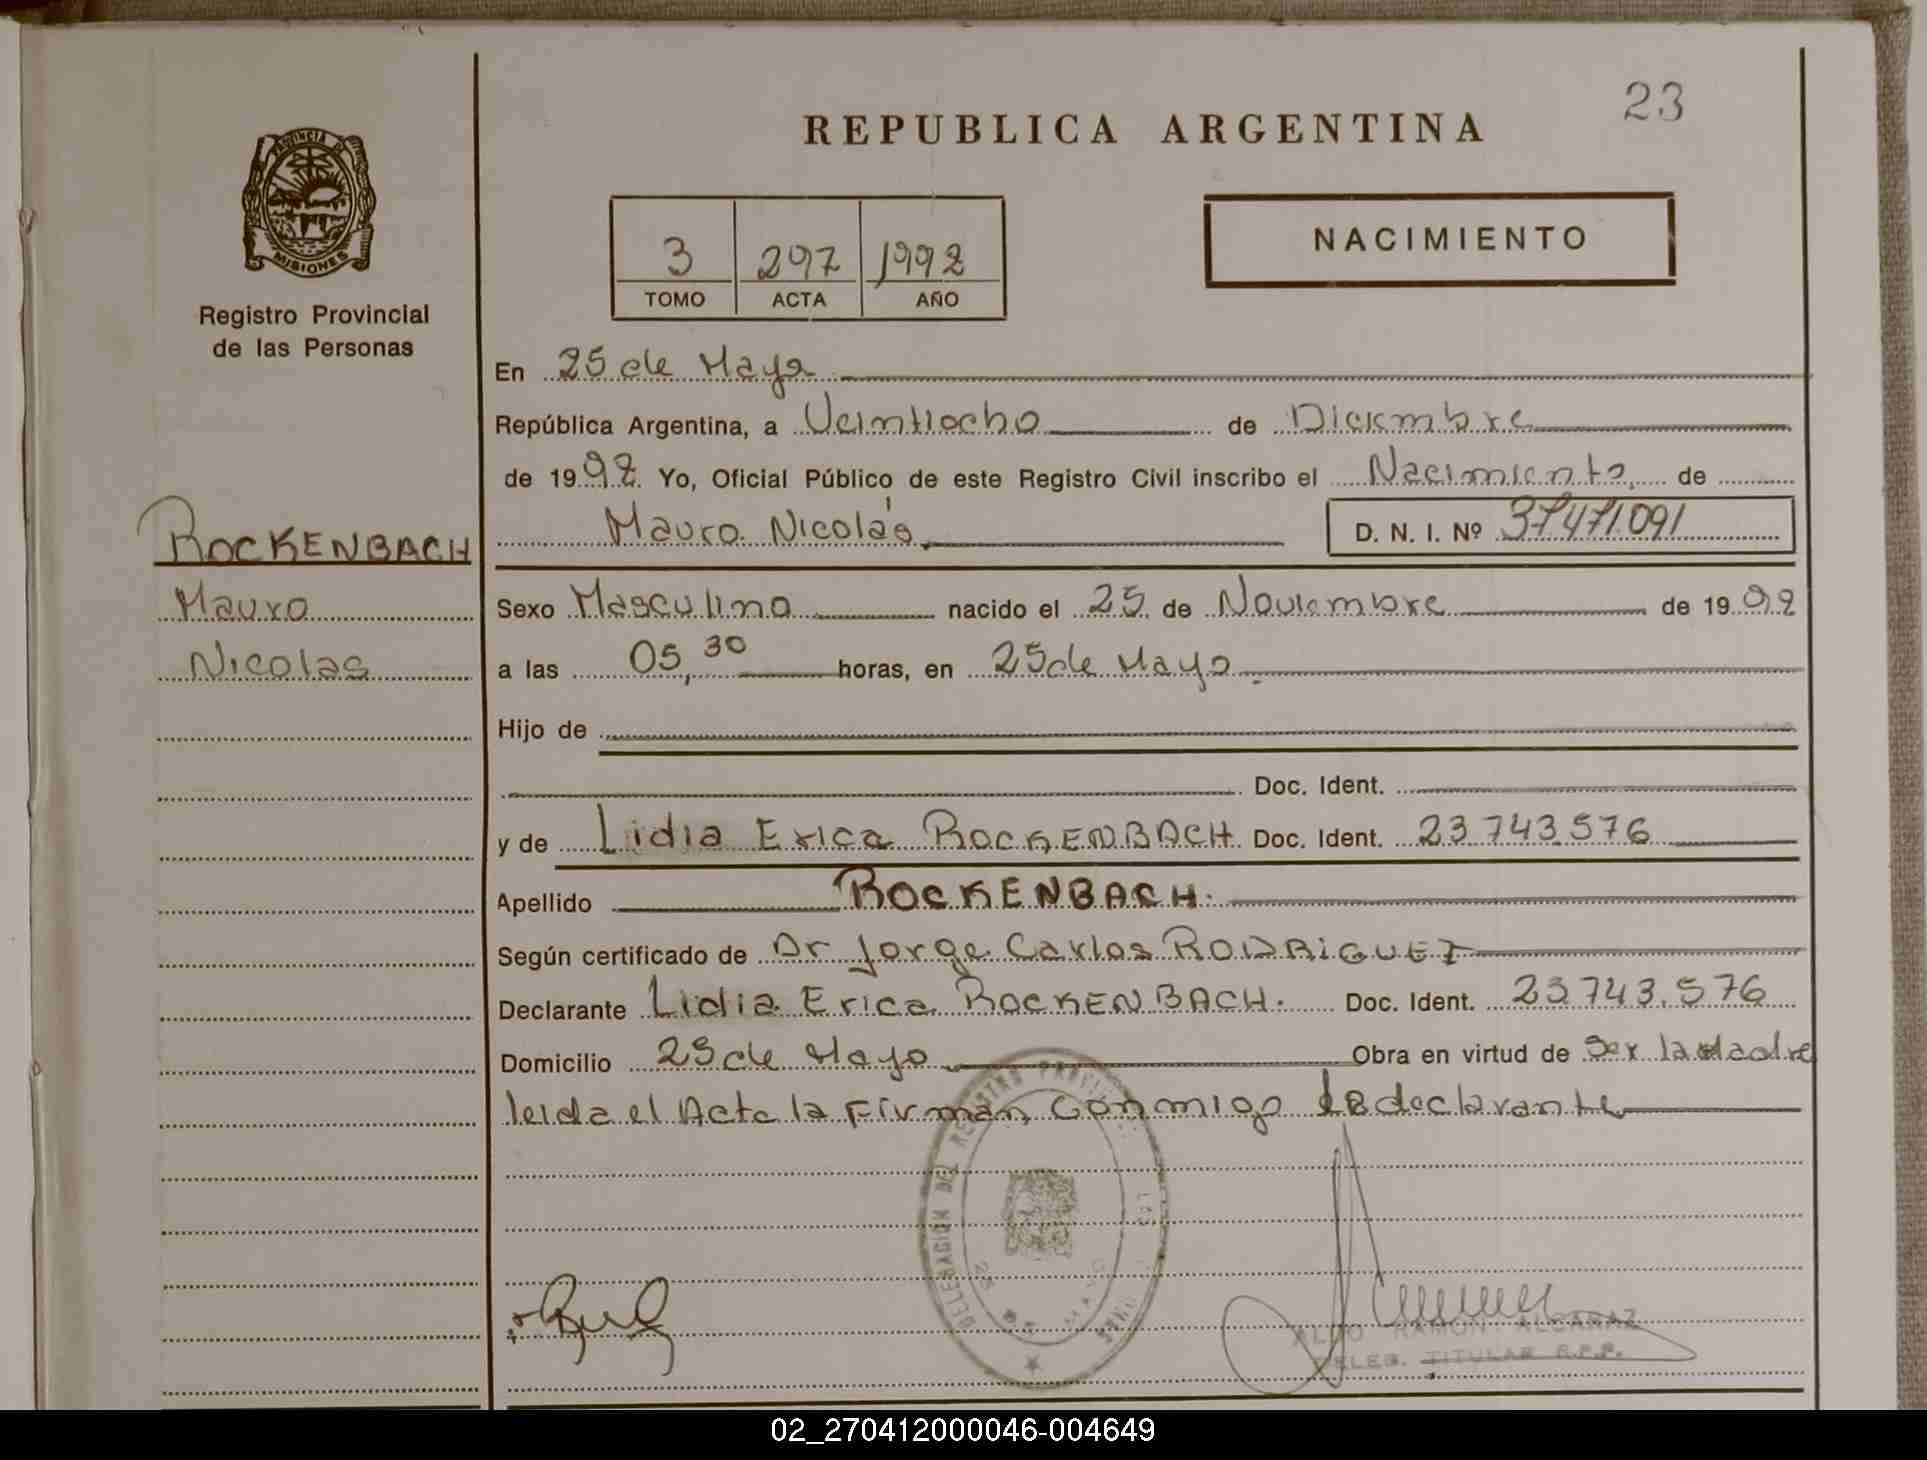 23
REPUBLICA ARGENTINA
PROVINCIA DE
MISIONES
Registro Provincial
de las Personas
3 297 1992
TOMO ACTA AÑO
NACIMIENTO
En 25 de Mayo
República Argentina, a Veintiocho de Diciembre
de 1992 Yo, Oficial Público de este Registro Civil inscribo el Nacimiento, de
Mauro Nicolás D. N. I. Nº 37.471.091
ROCKENBACH
Mauro
Nicolas
Sexo Masculino nacido el 25 de Noviembre de 1992
a las 05,30 horas, en 25 de Mayo
Hijo de
Doc. Ident.
y de Lidia Erica ROCKENBACH Doc. Ident. 23.743.576
Apellido ROCKENBACH.
Según certificado de Dr Jorge Carlos RODRIGUEZ
Declarante Lidia Erica ROCKENBACH. Doc. Ident. 23.743.576
Domicilio 25 de Mayo Obra en virtud de Ser la Madre
leida el Acta la Firman, Conmigo la declarante
DELEGACION DEL REGISTRO PROVINCIAL LAS
25 DE MAYO
ALDO RAMON ALCARAZ
DELEG. TITULAR R.P.P.
02_270412000046-004649